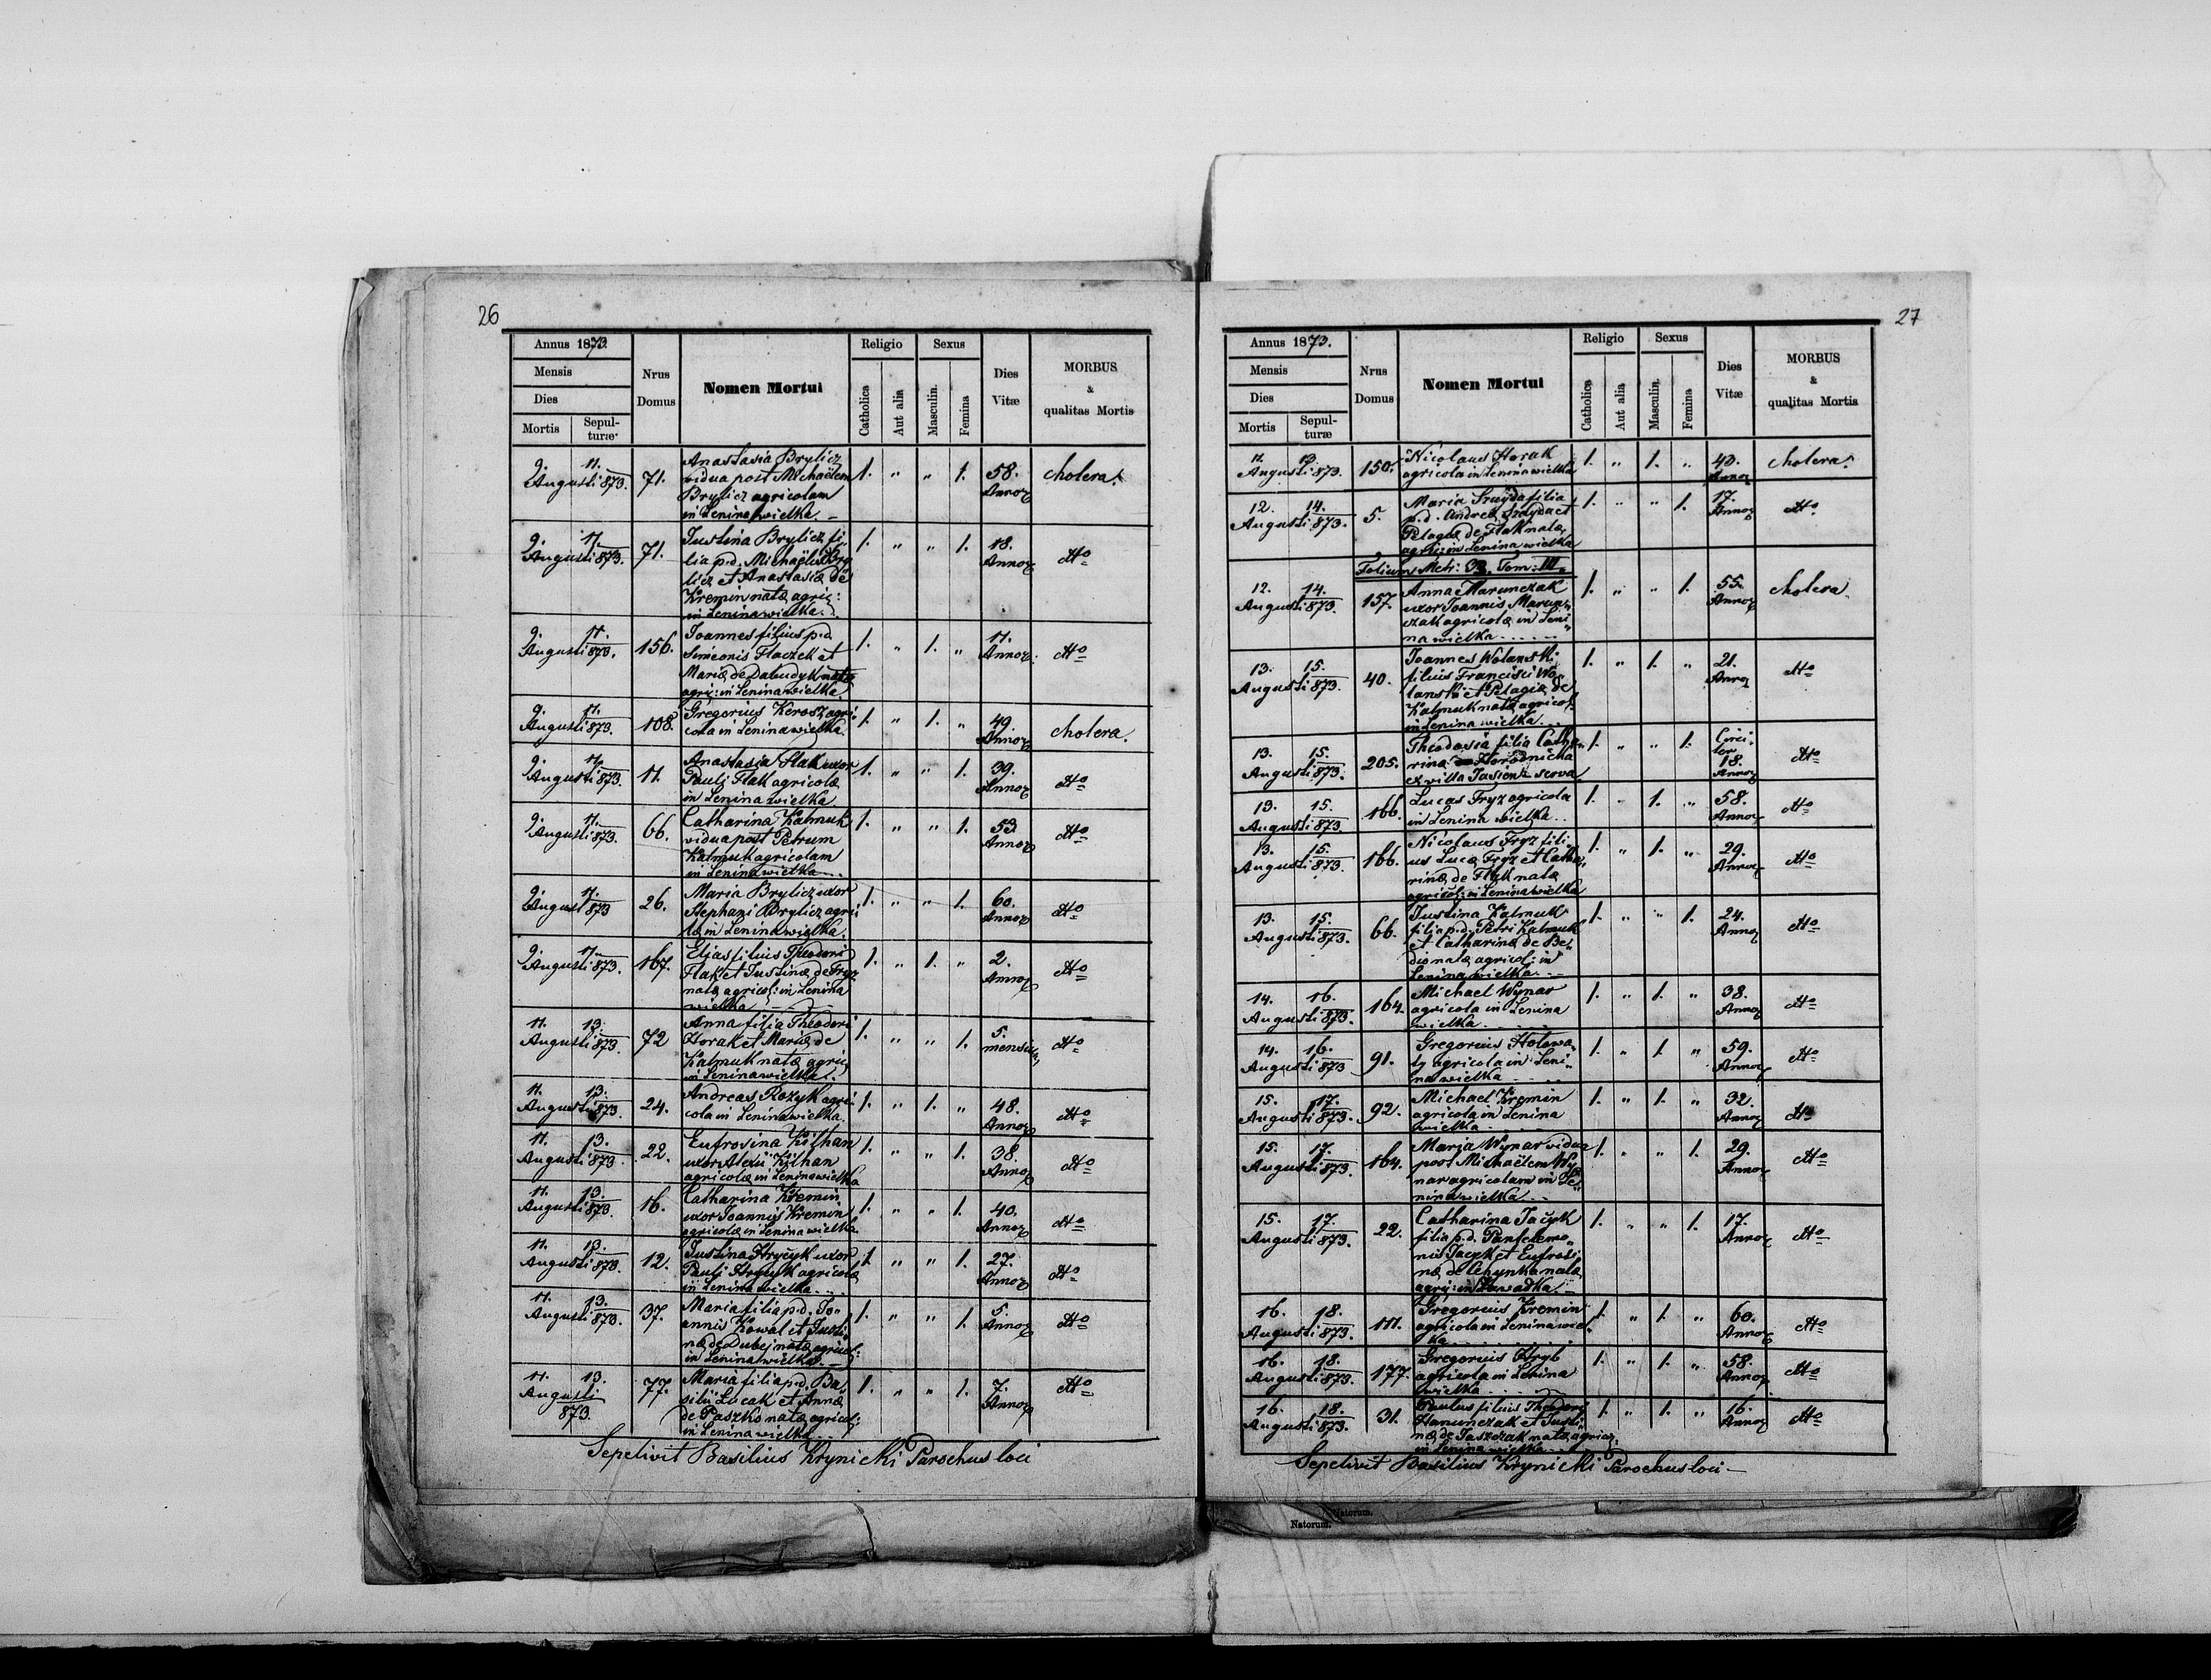 26
Annus 1873.
Mensis
Dies
Mortis
Sepul-
turæ
Nrus
Domus
Nomen Mortui
Religio
Catholica
Aut alia
Sexus
Masculin.
Femina
Dies
Vitæ
MORBUS
&
qualitas Mortis
9. 11.
Augusti 873. 71. Anastasia Brylicz 1. " " 1. 58. cholera.
vidua post Michaëlem Annor
Brylicz agricolam
in Lenina wielka. –
9. 11.
Augusti 873. 71. Justina Brylicz fi, 1. " " 1. 18. dto
lia p.d. Michaëlis Bry Annor
licz et Anastasiæ de
Kremin natæ agric:
in Lenina wielka.
9. 11.
Augusti 873. 156. Joannes filius p.d. 1. " 1. " 11. dto
Simeonis Flaczek et Annor
Mariæ de Dabudyk natæ
agri: in Lenina wielka
9. 11.
Augusti 873. 108. Gregorius Kerosz agri 1. " 1. " 49. cholera.
cola in Lenina wielka. Annor
9. 11.
Augusti 873. 11. Anastasia Flak uxor 1. " " 1. 39. dto
Pauli Flak agricolæ Annor
in Lenina wielka
9. 11.
Augusti 873. 66. Catharina Kalmuk 1. " " 1. 53 dto
vidua post Petrum Annor
Kalmuk agricolam
in Lenina wielka
9. 11.
Augusti 873 26. Maria Brylicz uxor 1. " " 1. 60. dto
Stephani Brylicz agri Annor
læ in Lenina wielka.
9. 11.
Augusti 873. 167. Elias filius Theodori 1. " 1. " 2. dto
Flak et Justinæ de Fryz Annor
natæ agricol: in Lenina
wielka
11. 13.
Augusti 873. 72 Anna filia Theodori 1. " " 1. 5. dto
Horak et Mariæ de mensium
Kalmuk natæ agric
in Lenina wielka.
11. 13.
Augusti 873. 24. Andreas Rozyk agri 1. " 1. " 48. dto
cola in Lenina wielka. Annor
11. 13.
Augusti 873. 22. Eufrosina Kithan 1. " " 1. 38. dto
uxor Alexii Kithan Annor
agricolæ in Lenina wielka
11. 13.
Augusti 873. 16. Catharina Kremin 1. " " 1. 40. dto
uxor Joannis Kremin Annor
agricolæ in Lenina wielka
11. 13.
Augusti 873. 12. Justina Hrycyk uxor 1 " " 1. 27. dto
Pauli Hrycyk agricolæ Annor
in Lenina wielka
11. 13.
Augusti 873. 37. Maria filia p.d. Jo, 1. " " 1. 5. dto
annis Kowal et Justi, Annor
næ de Dubej natæ agricol:
in Lenina wielka. –
11. 13.
Augusti 873. 77. Maria filia p.d. Ba 1. " " 1. 7. dto
silii Lucak et Annæ Annor
de Paszko natæ agricol:
in Lenina wielka
Sepelivit Basilius Krynicki Parochus loci
27
Annus 1873.
Mensis
Dies
Mortis
Sepul-
turæ
Nrus
Domus
Nomen Mortui
Religio
Catholica
Aut alia
Sexus
Masculin.
Femina
Dies
Vitæ
MORBUS
&
qualitas Mortis
11. 13.
Augusti 873. 150. Nicolaus Horak 1. " 1. " 43. cholera.
agricola in Lenina wielka Annor
12. 14.
Augusti 873. 5. Maria filia 1. " " 1. 17. dto
p.d. Andreæ et Annor
Pelagiæ de Flak natæ
agric: in Lenina wielka
Folium Metr: 93. Tom: III.
12. 14.
Augusti 873. 157. Anna Marunczak 1. " " 1. 55. cholera.
uxor Joannis Marun, Annor
czak agricolæ in Leni
na wielka
13. 15.
Augusti 873. 40. Joannes Wolanski 1. " 1. " 21. dto
filius Francisci Wo Annor
lanski et Pelagiæ de
Kalmuk natæ agricol
in Lenina wielka
13. 15.
Augusti 873. 205. Theodosia filia Catha, 1. " " 1. Circi,
rinæ Horodnicka ter 18. dto
ex villa Jasienz scova Annor
13. 15.
Augusti 873. 166. Lucas Fryz agricola 1. " 1. " 58. dto
in Lenina wielka Annor
13. 15.
Augusti 873. 166. Nicolaus Fryz fili, 1. " 1. " 29. dto
us Lucæ Fryz et Catha, Annor
rinæ de Flak natæ
agricol: in Lenina wielka
13. 15.
Augusti 873. 66. Justina Kalmuk 1. " " 1. 24. dto
filia p.d. Petri Kalmuk Annor
et Catharinæ de Be,
dio natæ agricol: in
Lenina wielka
14. 16.
Augusti 873. 164. Michael Wynar 1. " 1. " 38. dto
agricola in Lenina Annor
wielka
14. 16.
Augusti 873 91. Gregorius Holowa, 1. " 1. " 59. dto
ty agricola in Leni, Annor
na wielka
15. 17.
Augusti 873. 92. Michael Kremin 1. " 1. " 32. dto
agricola in Lenina Annor
wielka
15. 17.
Augusti 873. 164. Maria Wynar vidua 1. " " 1. 29. dto
post Michaëlem Wy Annor
nar agricolam in Le
nina wielka
15. 17.
Augusti 873. 22. Catharina Jacyk 1. " " 1. 17. dto
filia p.d. Pantelemo, Annor
nis Jacyk et Eufrosi
næ de Chynka natæ
agri: in Zawadka. –
16. 18.
Augusti 873. 111. Gregorius Kremin 1. " 1. " 60. dto
agricola in Lenina wiel Annor
ka
16. 18.
Augusti 873. 177. Gregorius Hryb 1. " 1. " 58. dto
agricola in Lenina Annor
wielka
16. 18.
Augusti 873. 31. Paulus filius Theodori 1. " 1. " 16. dto
Hanunczak et Justi Annor
næ de Jaszczak natæ agric
in Lenina wielka
Sepelivit Basilius Krynicki Parochus loci –
Natorum.
Natorum.